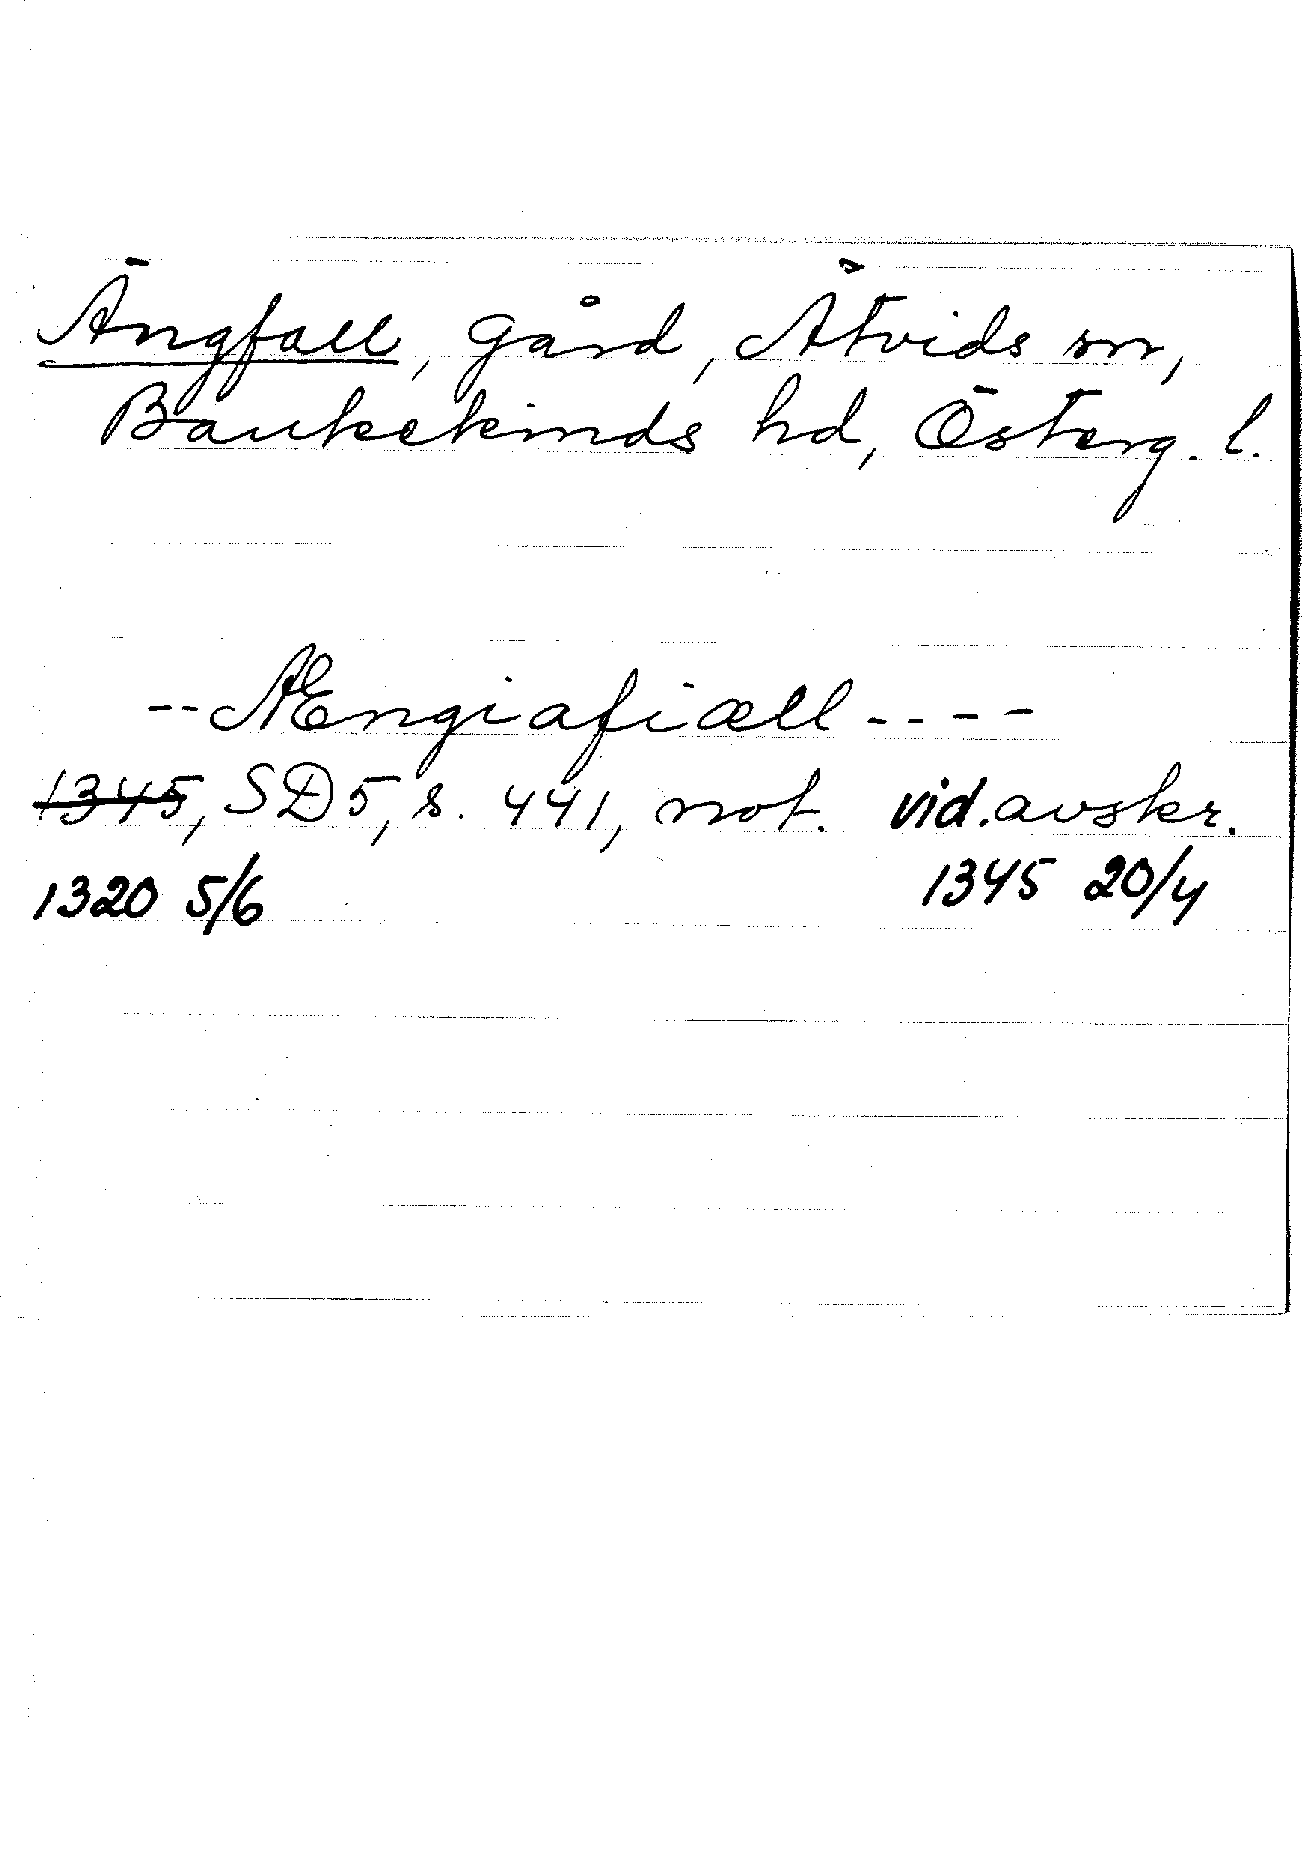 Ängfall, gård, Åtvids sn,
Bankekinds hd, Österg. l.
--Ængiafiæll----
1345, SD5, s. 441, not. vid.avskr.
1320 5/6 1345 20/4